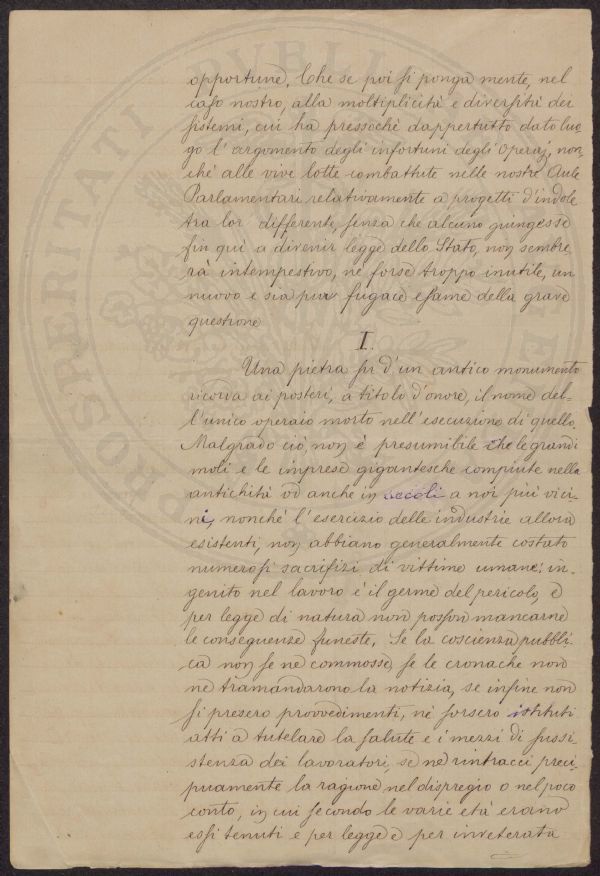 opportune. Che se poi si ponga mente, nel
caso nostro, alla moltiplicità e diversità dei
sistemi, cui ha pressochè dappertutto dato luo-
go l'argomento degli infortuni degli Operaj, non-
chè alle vive lotte combattute nelle nostre Aule
Parlamentari relativamente a progetti d'indole
tra lor differente, senza che alcuno giungesse
fin quì a divenir legge dello Stato, non sembre-
rà intempestivo, nè forse troppo inutile, un
nuovo e sia pur fugace esame della grave
questione
I.
Una pietra di d'un antico monumento
ricorda ai posteri, a titolo d'onore, il nome del-
l'unico operaio morto nell'esecuzione di quello.
Malgrado ciò, non è presumibile che le grandi
moli e le imprese gigantesche compiute nella
antichità od anche in secoli a noi più vici-
ni, nonchè l'esercizio delle industrie allora
esistenti, non abbiano generalmente costato
numerosi sacrifizi di vittime umane: in-
genito nel lavoro è il germe del pericolo, e
per legge di natura non posson mancarne
le conseguenze funeste. Se la coscienza pubbli-
ca non se ne commosse, se le cronache non
ne tramandarono la notizia, se infine non
si presero provvedimenti, nè sorsero istituti
atti a tutelare la salute e i mezzi di sussi-
stenza dei lavoratori, se ne rintracci preci-
puamente la ragione nel dispregio o nel poco
conto, in cui secondo le varie età erano
essi tenuti e per legge e per inveterata
PROSPERITATI PVBLI